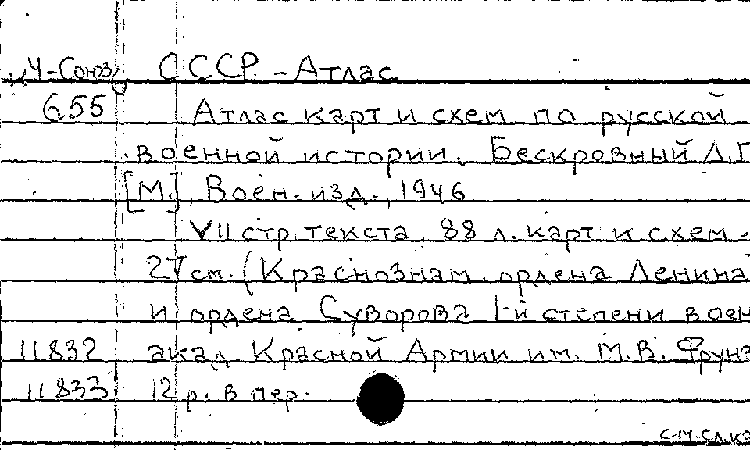 Ч-Союз СССР - Атлас
655 Атлас карт и схем по русской
военной истории. Бескровный Л.Г
[М.], Воен. изд., 1946
VII стр. текста, 88 л. карт и схем.
27 см. (Краснознам. ордена Ленина
и ордена Суворова I-й степени воен
11832 акад. Красной Армии им. М.В. Фрунз
11833 12 р. в пер.